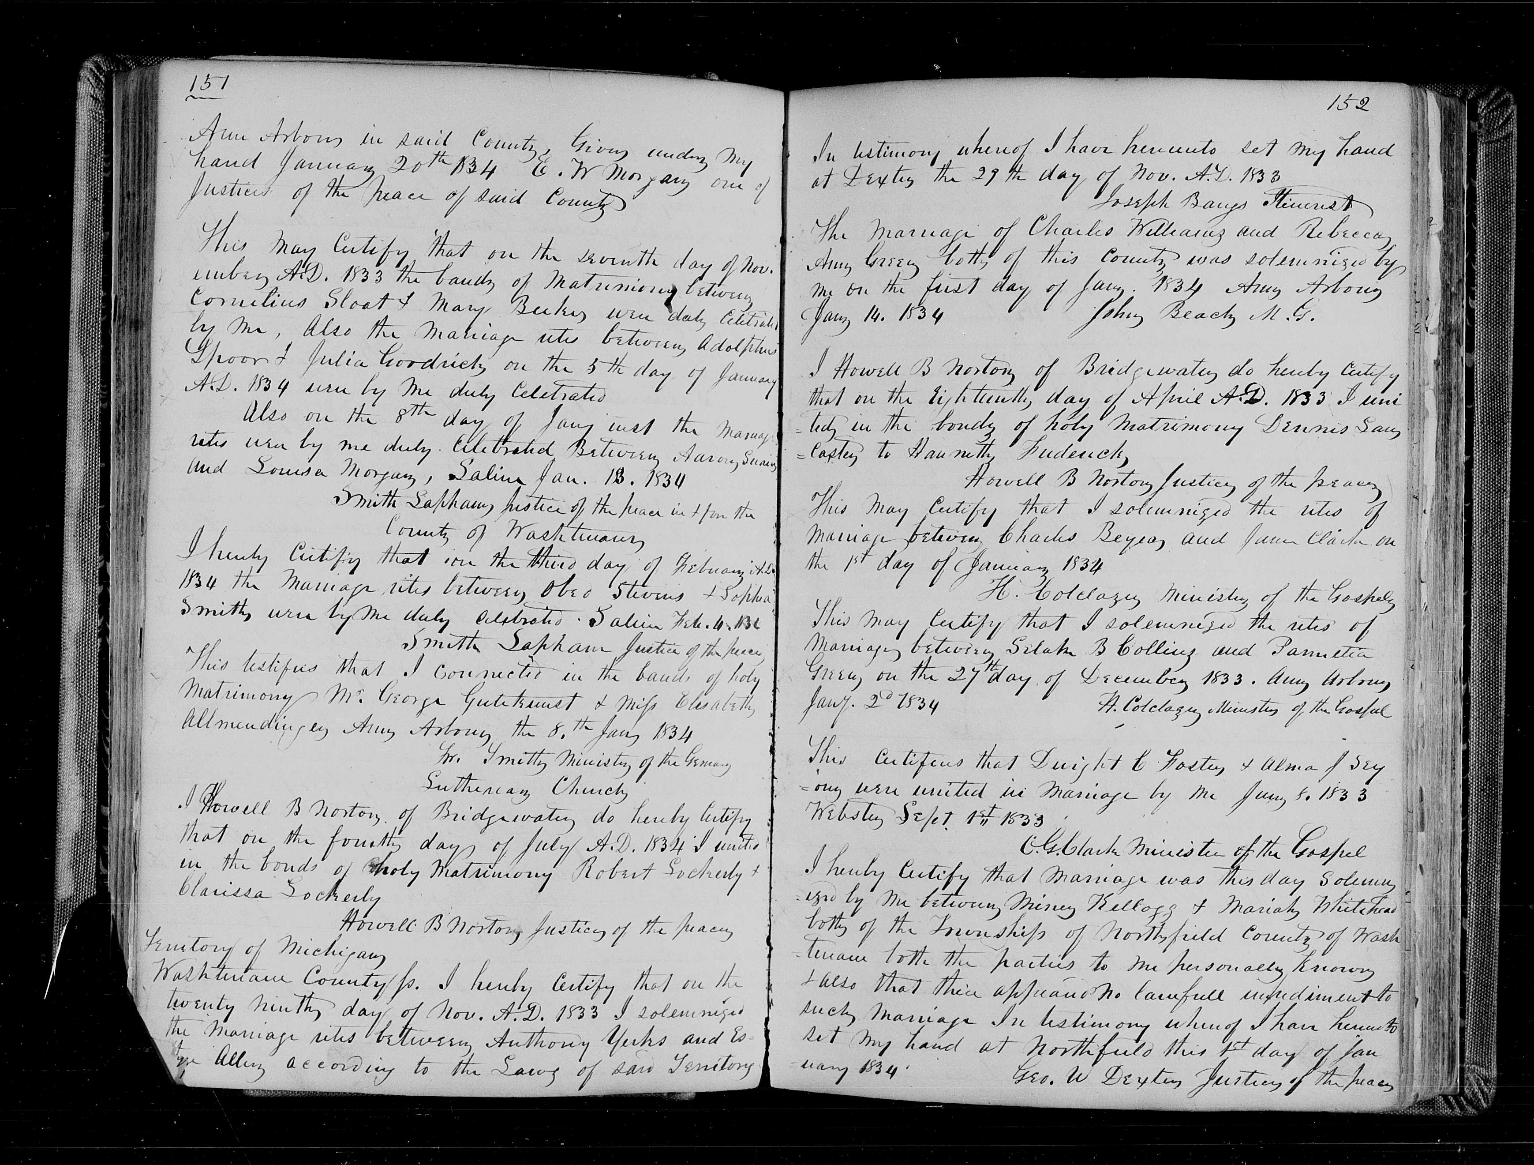 151
Ann Arbour in said County, Given under my
hand January 20th 1834 E. W Morgan one of
Justices of the peace of said County
This may Certify that on the seventh day of Nov.
ember A.D. 1833 the bands of Matrimony between
Cornelius Sloat & Mary Becker were duly Celebrated
by me, Also the marriage rites between Adolphus
Spoor & Julia Goodrich on the 5th day of January
A.D. 1834 were by me duly Celebrated
Also on the 8th day of Jany inst the marriage
rites were by me duly Celebrated Between Aaron
and Louisa Morgan, Saline Jan. 13. 1834
Smith Lapham Justice of the peace in & for the
County of Washtenaw
I hereby Certify that on the third day of February A.D.
1834 the marriage rites between Obed Stevens & Sophia
Smith were by me duly celebrated. Saline Feb. 4.
Smith Lapham Justice of the peace
This testifies that I connected in the bands of holy
Matrimony Mr. George Gutekunst & Miss Elisabeth
Allmendinger Ann Arbour the 8.th Jany 1834
Fr. Smith Minister of the German
Lutheran Church
I Howell B Norton of Bridgewater do hereby Certify
that on the fourth day of July A.D. 1834 I united
in the bonds of holy Matrimony Robert Lockerly &
Clarissa Lockerly
Howell B Norton Justice of the peace
Territory of Michigan
Washtenaw County ss. I hereby Certify that on the
twenty ninth day of Nov. A.D. 1833 I solemnized
the marriage rites between Anthony Yerks and Es-
Allen according to the Laws of said Territory
152
In testimony whereof I have hereunto set my hand
at Dexter the 29th day of Nov. A.D. 1833
Joseph Bangs Itinerant
The marriage of Charles Williams and Rebecca
Ann Green both of this County was solemnized by
me on the first day of Jany. 1834 Ann Arbour
Jany 14. 1834 John Beach M. G.
I Howell B Norton of Bridgewater do hereby Certify
that on the Eighteenth day of April A.D. 1833 I uni
=ted in the bonds of holy Matrimony Dennis Lan
=caster to Hannah Frederick
Howell B Norton Justice of the peace
This may Certify that I solemnized the rites of
Marriage between Charles Beyea and Jane Clark on
the 1st day of January 1834
H. Colclazer Minister of the Gospel
This may Certify that I solemnized the rites of
Marriage between Selah B Collins and Parmelia
Green on the 27th day of December 1833. Ann Arbour
Jany. 2d 1834 H. Colclazer Minister of the Gospel
This certifies that Dwight C Foster & Alma J Sey
=our were united in Marriage by me Jany 8. 1833
Webster Sept. 1st 1833
C. G. Clark Minister of the Gospel
I hereby Certify that Marriage was this day Solemn
=ized by me between Kellogg & Mariah Whitehead
both of the Township of Northfield County of Wash
=tenaw both the parties to me personally Known
& also that there appeard No lawfull impediment to
such marriage In testimony whereof I have hereunto
set my hand at Northfield this 1st day of Jan
=uary 1834.
Geo. W Dexter Justice of the peace